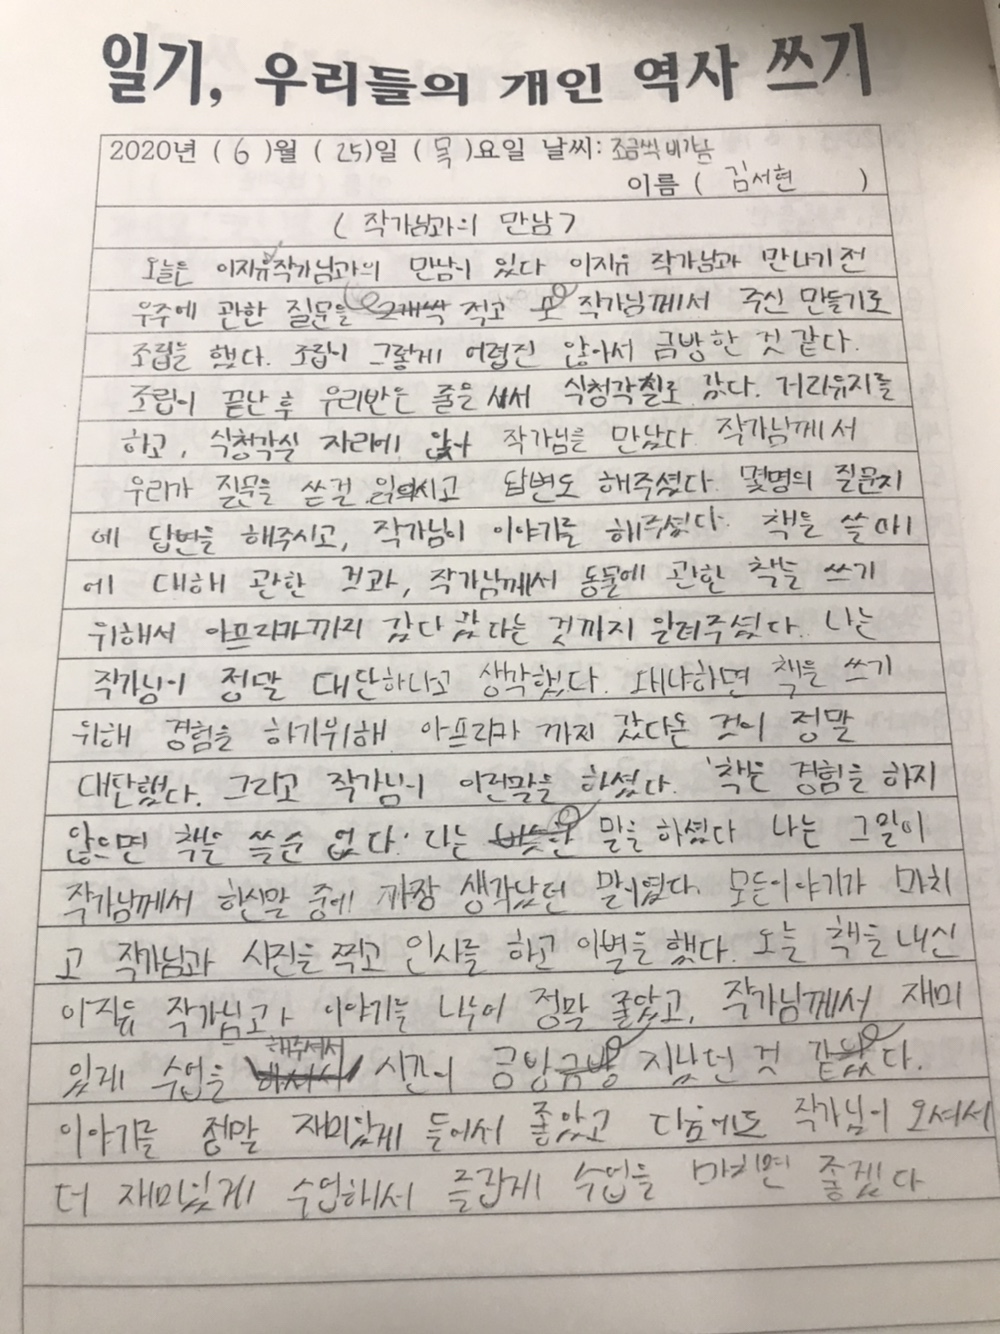 일기, 우리들의 개인 역사 쓰기
2020년 ( 6 )월 ( 25 )일 ( 목 )요일 날씨: 조금씩 비가옴
이름 ( 김서현 )
< 작가님과의 만남 >
오늘은 이지유작가님과의 만남이 있다 이지유 작가님과 만나기전
우주에 관한 질문을 2개싹 적고 작가님께서 주신 만들기로
조립을 했다. 조립이 그렇게 어렵진 않아서 금방한 것 같다.
조립이 끝난 후 우리반은 줄을 서서 식청각실로 갔다. 거리유지를
하고, 식청각실 자리에 앉아 작가님을 만났다. 작가님께서
우리가 질문을 쓴걸 읽으시고 답변도 해주셨다. 몇명의 질문지
에 답변을 해주시고, 작가님이 이야기를 해주셨다. 책을 쓸
에 대해 관한 작가님께서 동물에 관한 책을 쓰기
위해서 아프리카까지 갔다 는 것까지 알려주셨다. 나는
작가님이 정말 대단하다고 생각했다. 왜냐하면 책을 쓰기
위해 경험을 하기위해 아프리카 까지 갔다온 것이 정말
대단했다. 그리고 작가님이 이런말을 하셨다. '책은 경험을 하지
않으면 책을 쓸순 없다.' 라는 비슷한 말을 하셨다 나는 그말이
작가님께서 하신말 중에 가장 생각났던 말이였다. 모든이야기가 마치
고 작가님과 사진을 찍고 인사를 하고 이별을 했다. 오늘 책을 내신
이지유 작가님과 이야기를 나누어 정말 좋았고, 작가님께서 재미
있게 수업을 해주셔서 시간이 금방금방 지났던 것 같았다.
이야기를 정말 재미있게 들어서 좋았고 다음에도 작가님이 오셔서
더 재미있게 수업해서 즐겁게 수업을 마치면 좋겠다